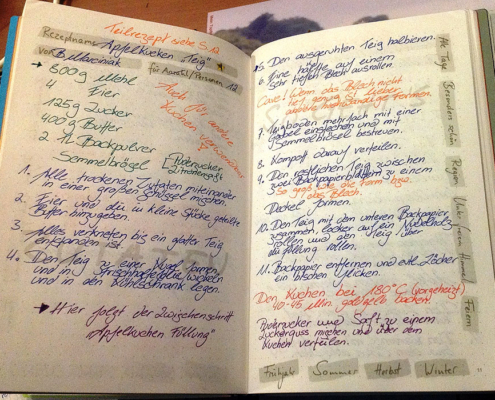 Teilrezept siehe S. 12
Rezeptname „Apfelkuchen Teig"
von
für Anzahl/Personen 12
600g Mehl
4 Eier
125g Zucker
400g Butter
2 TL Backpulver
Semmelbrösel
[Puderzucker
Zitronensaft
Auch für andere
Kuchen verwendbar
1. Alle trockenen Zutaten miteinander
in einer großen Schüssel mischen.
2. Eier und die in kleine Stücke geteilte
Butter hinzugeben.
3. Alles verkneten bis ein glatter Teig
entstanden ist.
4. Den Teig zu einer Kugel formen
und in Frischhaltefolie wickeln
und in den Kühlschrank legen.
Hier folgt der Zwischenschritt
„Apfelkuchen Füllung"
5. Den ausgeruhten Teig halbieren.
6. Eine Hälfte auf einem
sehr tiefen Blech ausrollen.
Wenn das Blech nicht
tief genug ist lieber
Formen.
7. Teigboden mehrfach mit einer
Gabel einstechen und mit
Semmelbrösel bestreuen.
8. Kompott darauf verteilen.
9. Den restlichen Teig zwischen
zwei Backpapierblättern zu einem
So groß wie die Form bzw.
das Blech.
Deckel formen.
10. Den Teig mit dem unteren Backpapier
zusammen, locker auf ein Nudelholz
rollen und den Teig über
die Füllung rollen.
11. Backpapier entfernen und evtl. Löcher
ein bisschen flicken.
Den Kuchen bei 180°C (vorgeheizt)
40-45 Min. goldgelb backen.
Puderzucker und Saft zu einem
Zuckerguss mischen und über dem
Kuchen verteilen.
Frühjahr Sommer Herbst Winter
Alle Tage
Besonders schön
Regen
Unter freiem Himmel
Feiern